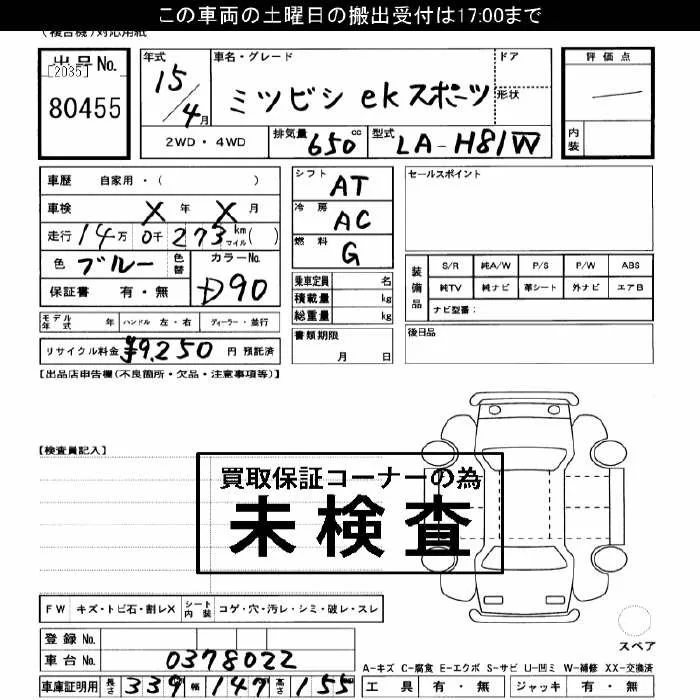 この車両の土曜日の搬出受付は17:00まで
(複合機)対応用紙
出品No.
[2035]
80455
年式
15/4月
車名・グレード
ミツビシ ekスポーツ
ドア
形状
評価点
内装
2WD・4WD
排気量 650cc
型式 LA-H81W
車歴 自家用・( )
車検 X年 X月
走行 14万 0千 273 km マイル( )
色 ブルー
色替
カラーNo.
D90
保証書 有・無
シフト AT
冷房 AC
燃料 G
乗車定員 名
積載量 kg
総重量 kg
書類期限
月 日
セールスポイント
装備品
S/R 純A/W P/S P/W ABS
純TV 純ナビ 革シート 外ナビ エアB
ナビ型番:
後日品
モデル年式 年 ハンドル 左・右 ディーラー・並行
リサイクル料金 ¥9,250 円 預託済
【出品店申告欄(不良箇所・欠品・注意事項等)】
【検査員記入】
買取保証コーナーの為
未検査
FW キズ・トビ石・割レX シート内装 コゲ・穴・汚レ・シミ・破レ・スレ
スペア
登録No.
車台No. 0378022
A-キズ C-腐食 E-エクボ S-サビ U-凹ミ W-補修 XX-交換済
車庫証明用 長さ 339 幅 147 高さ 155
工具 有・無 ジャッキ 有・無